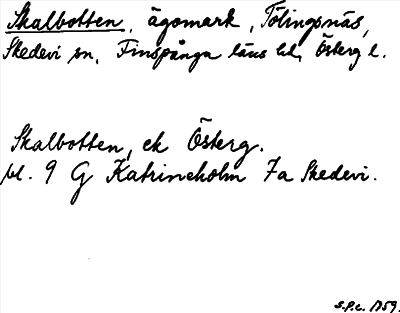 Skalbotten, ägomark, Tolingsnäs,
Skedevi sn, Finspånga läns hd, Österg l.
Skalbotten, ek Österg.
bl. 9 G Katrineholm 7a Skedevi.
S.P.C. 1959.